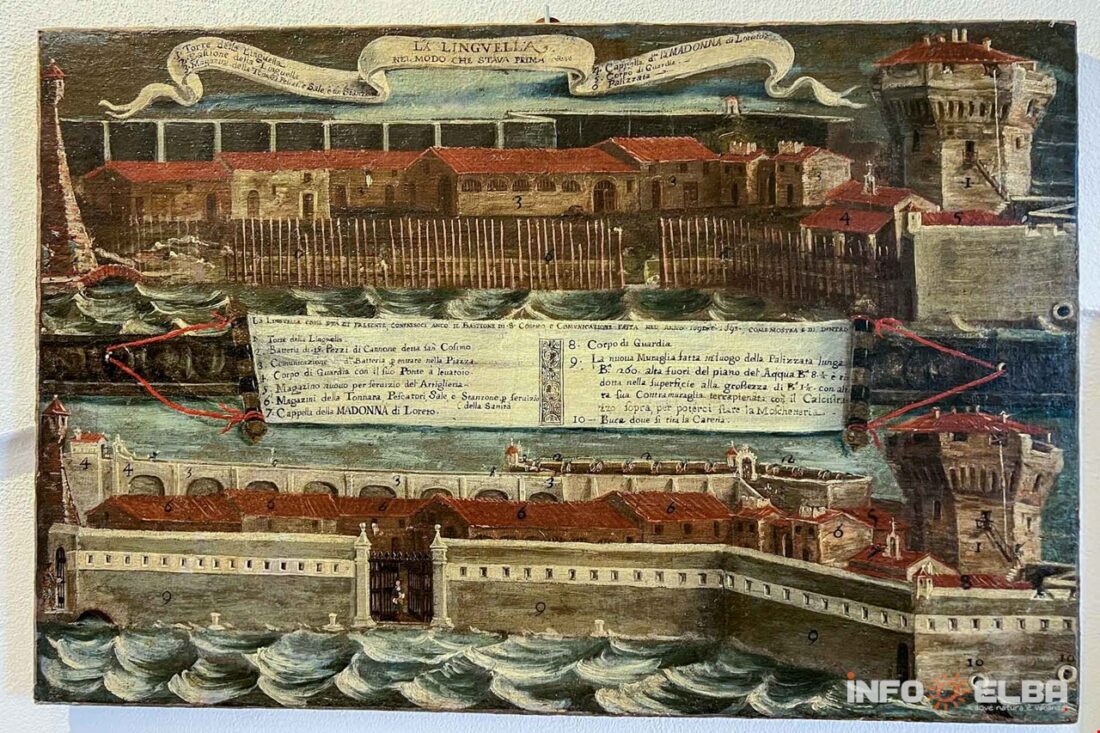 LA LINGVELLA
NEL MODO CHE STAVA PRIMA
1. Torre della Linguella
2. Bastione della Linguella
3. Magazini della Pesca, e Sale, e
4. Cappella d.ª la MADONNA di Loreto
5. Corpo di Guardia
6. Palizzata
LA LINGVELLA COME STA AL PRESENTE, CONFESSOCI ANCO IL BASTIONE DI S. COSIMO E COMVNICAZIONE FATTA NEL COME MOSTRA E DI DENTRO
1. Torre della Linguella
2. Batteria di 15. Pezzi di Cannone detta san Cosimo
3. Comunicazione Batteria p entrare nella Piazza
4. Corpo di Guardia con il suo Ponte a leuatoio
5. Magazino nuouo per seruizio dell'Artiglieria
6. Magazini della Tonnara Pescatori Sale e Stanzone p seruizio
(della Sanità
7. Cappella della MADONNA di Loreto.
8. Corpo di Guardia
9. La nuoua Muraglia fatta in luogo della Palizzata lunga
B.ª 260. alta fuori del piano del Acqua B.ª 8½ e ri
dotta nella superficie alla grossezza di B.ª 1½ con al
ra sua Contramuraglia terrapienata con il Calcistru
zzo sopra, per poterci stare la Moschetteria.
10 Buca doue si tira la Catena.
INFO ELBA
dove natura è vacanza